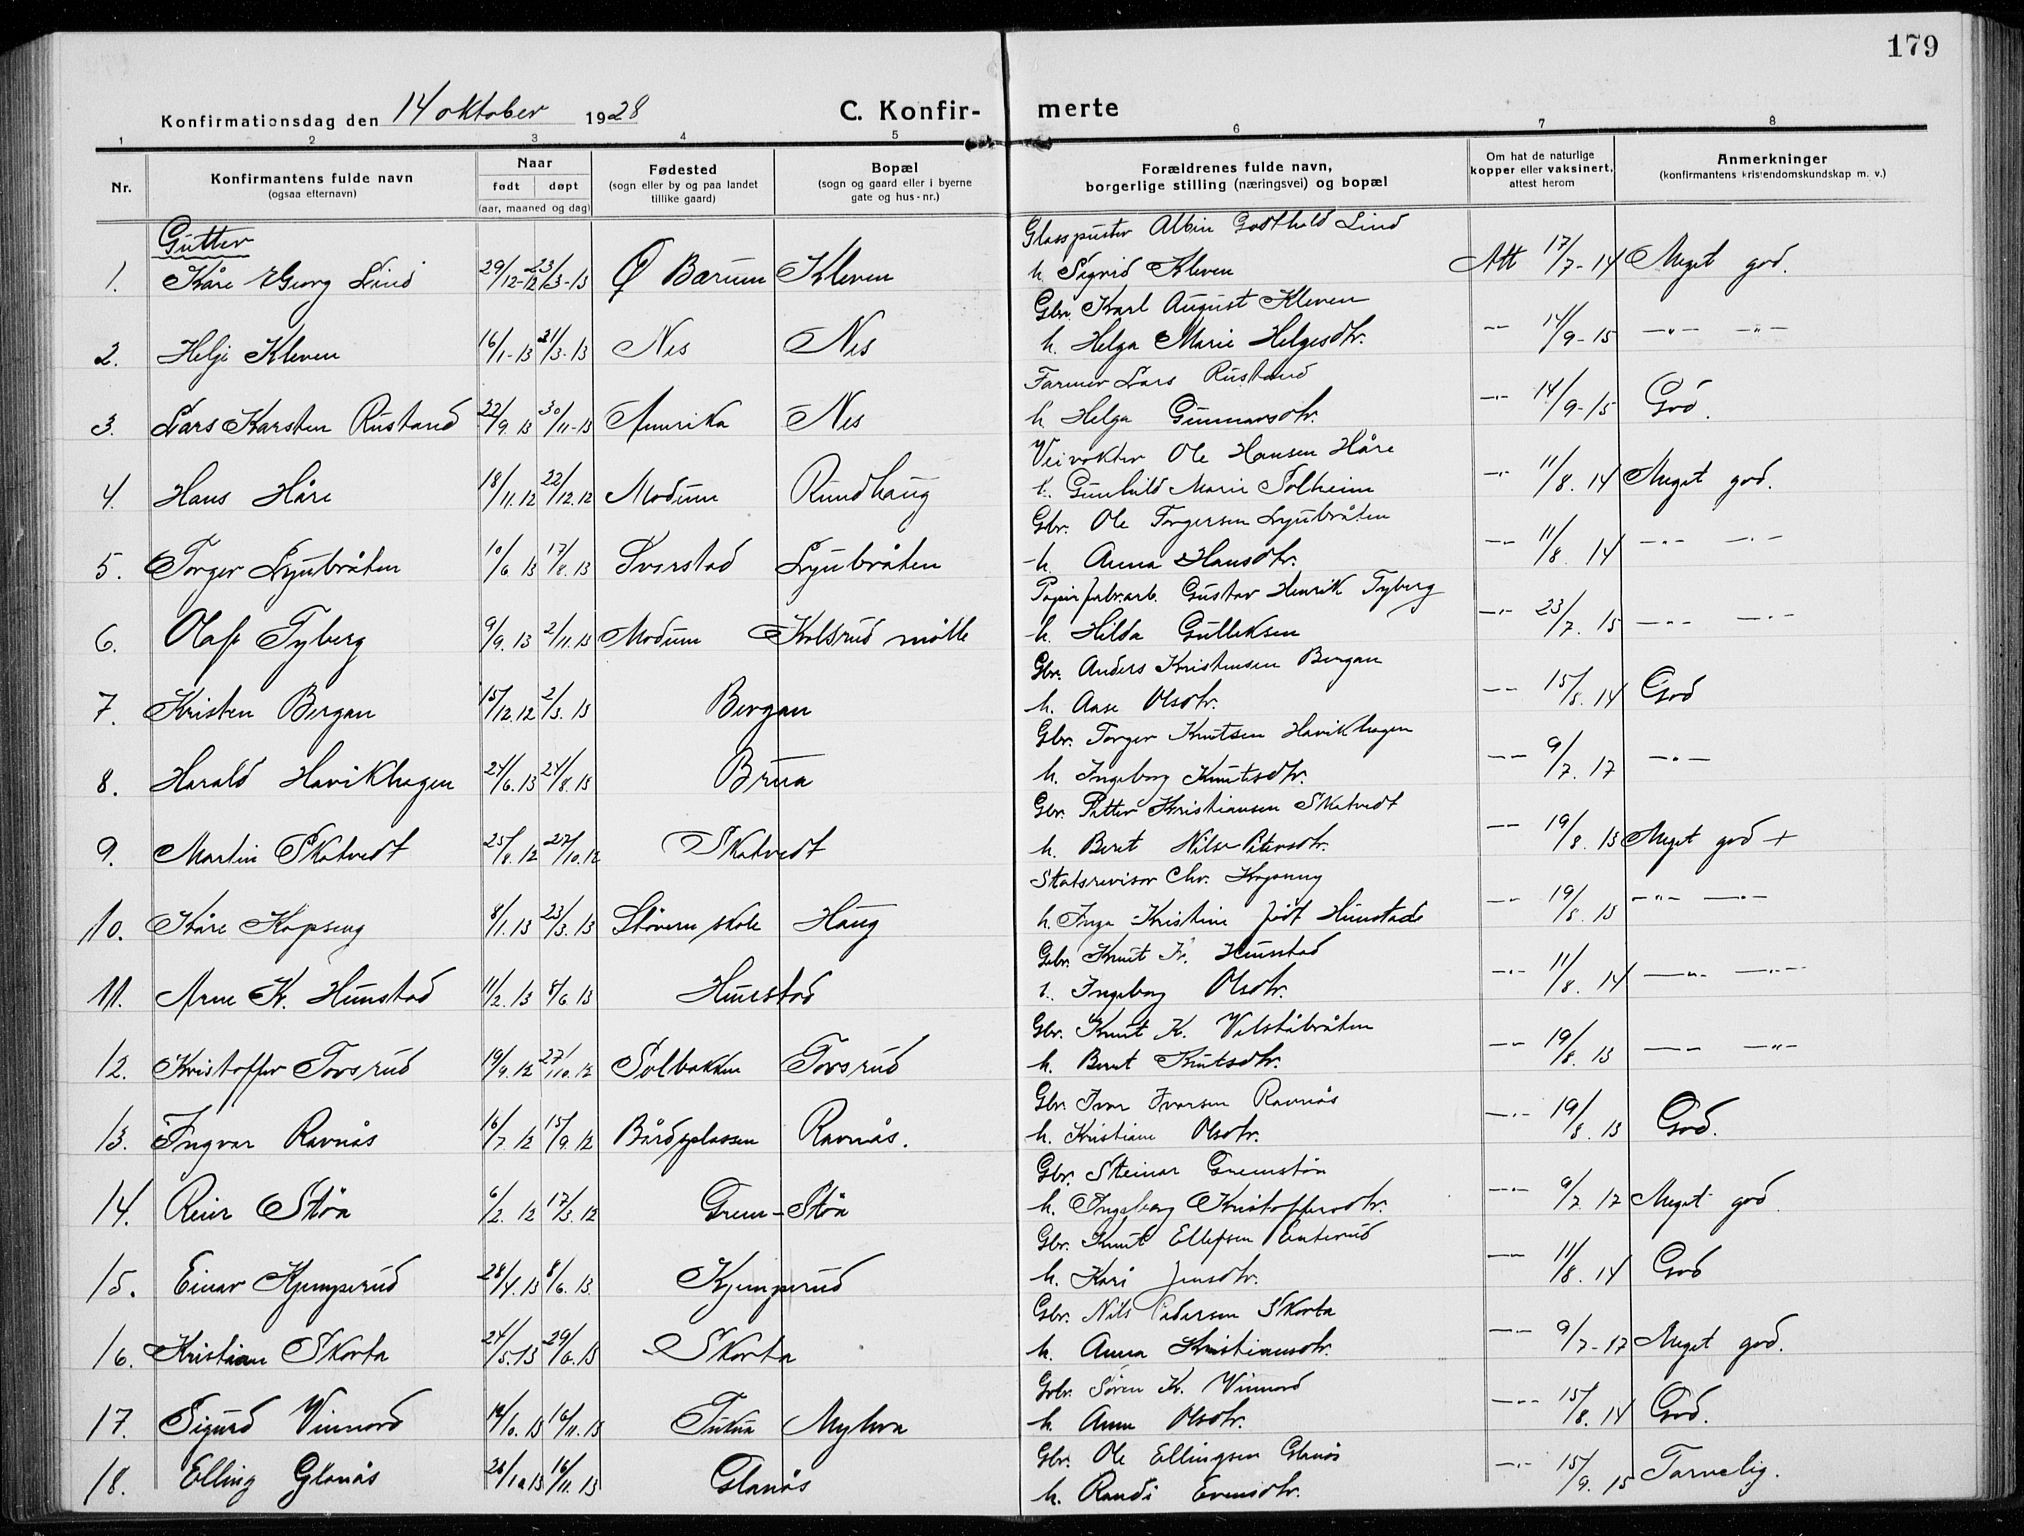 179
Konfirmationsdag den 14 oktober 1928 C. Konfir- merte
1 2 3 4 5 6 7 8
Nr. Konfirmantens fulde navn (ogsaa efternavn) Naar født døpt (aar, maaned og dag) Fødested (sogn eller by og paa landet tillike gaard) Bopæl (sogn og gaard eller i byerne gate og hus-nr.) Forældrenes fulde navn, borgerlige stilling (næringsvei) og bopæl Om hat de naturlige kopper eller vaksinert, attest herom Anmerkninger (konfirmantens kristendomskundskap m. v.)
Gutter
Glasspuster Albin Godthold Lind
1. Kåre Georg Lind 29/12-12 23/3-13 Ø Bærum Kleven h Sigrid Kleven Att 17/7-14 Meget god.
Gbr. Karl August Kleven
2. Helje Kleven 16/1-13 21/3-13 Nes Nes h. Helga Marie Helgesdtr. -"- 14/9-15 -"- -"-
Farmer Lars Rustand
3. Lars Karsten Rustand 22/9.13 30/11-13 Amerika Nes h Helga Gunnarsdtr. -"- 14/9-15 God.
Veivokter Ole Hansen Håre
4. Hans Håre 18/11.12 22/12.12 Modum Rundhaug h. Gunhild Marie Solheim -"- 11/8.14 Meget god.
Gbr. Ole Torgersen Lyubråten
5. Torger Lyubråten 10/6 13 17/8.13 Sverstad Lyubråten h. Anna Hansdtr. -"- 11/8.14 -"- -"-
Papirfabr.arb. Gustav Henrik Tyberg
6. Olaf Tyberg 9/9.13 2/11.13 Modum Kolsrud mølle h. Hilda Gulleksen -"- 23/7.15 -"- -"-
Gbr. Anders Kristensen Bergan
7. Kristen Bergan 15/12.12 2/3.13 Bergan h. Aase Olsdtr. -"- 15/8.14 God
Gbr. Torger Knutsen Havikhagen
8. Harald Havikhagen 24/6.13 24/8.13 Brua h. Ingeborg Knutsdtr. -"- 9/7.17 -"-
Gbr. Petter Kristiansen Skatvedt
9. Martin Skatvedt 25/8.12 27/10.12 Skatvedt h. Beret Nilse Petersdtr. -"- 19/8.13 Meget god +
Statsrevisor Chr. Kopseng
10. Kåre Kopseng 8/1.13 23/3.13 Støvern skole Haug h. Inga Kristine født Hunstade -"- 19/8.13 -"- -"-
Gbr. Knut K. Hunstad
11. Arne K. Hunstad 11/2.13 8/6 13 Hunstad h. Ingeborg Olsdtr. -"- 11/8.14 -"- -"-
Gbr. Knut K. Velståbråten
12. Kristoffer Torsrud 19/9.12 27/10.12 Solbakken Torsrud h. Beret Knutsdtr. -"- 19/8.13 -"- -"-
Gbr. Ivar Ivarsen Ravnås
13. Ingvar Ravnås 16/7.12 15/9.12 Bårdsplassen Ravnås. h. Kristiane Olsdtr. -"- 19/8.13 God.
Gbr. Steinar Gremstøa
14. Reier Støa 6/2.12 17/3.12 Grem-Støa h. Ingeborg Kristoffersdtr. -"- 9/7.17 Meget god.
Gbr. Knut Ellefsen Enterud
15. Einar Kjemperud 28/4.13 8/6.13. Kjemperud h. Kari Jensdtr. -"- 11/8.14 God
Gbr. Nils Pedersen Skorta
16. Kristian Skorta 24/5.13 29/6.13 Skorta h. Anna Kristiansdtr. -"- 9/7-17 Meget god.
Gbr. Søren K. Vinnord
17. Sigurd Vinnord 14/10.13 16/11.13 Tukua Myhra h. Anne Olsdtr. -"- 15/8.14 God.
Gbr. Ole Ellingsen Glanås
18. Elling Glanås 26/10 13 16/11.13 Glanås h. Randi Evensdtr. -"- 15/9.15 Tarvelig.